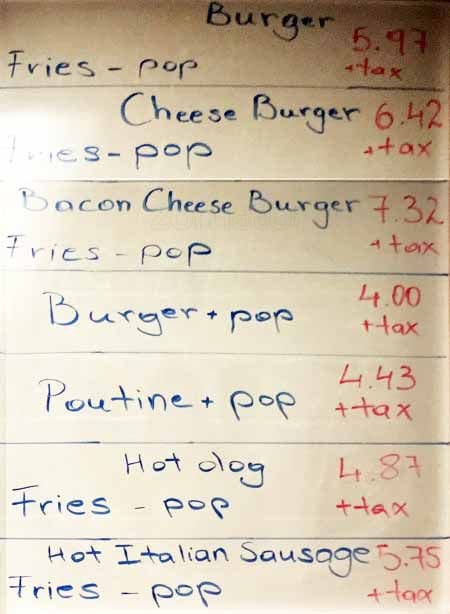 Burger 5.97
Fries - pop +tax
Cheese Burger 6.42
Fries - pop +tax
Bacon Cheese Burger 7.32
Fries - pop +tax
Burger + pop 4.00
+tax
Poutine + pop 4.43
+tax
Hot dog 4.87
Fries - pop +tax
Hot Italian Sausage 5.75
Fries - pop +tax